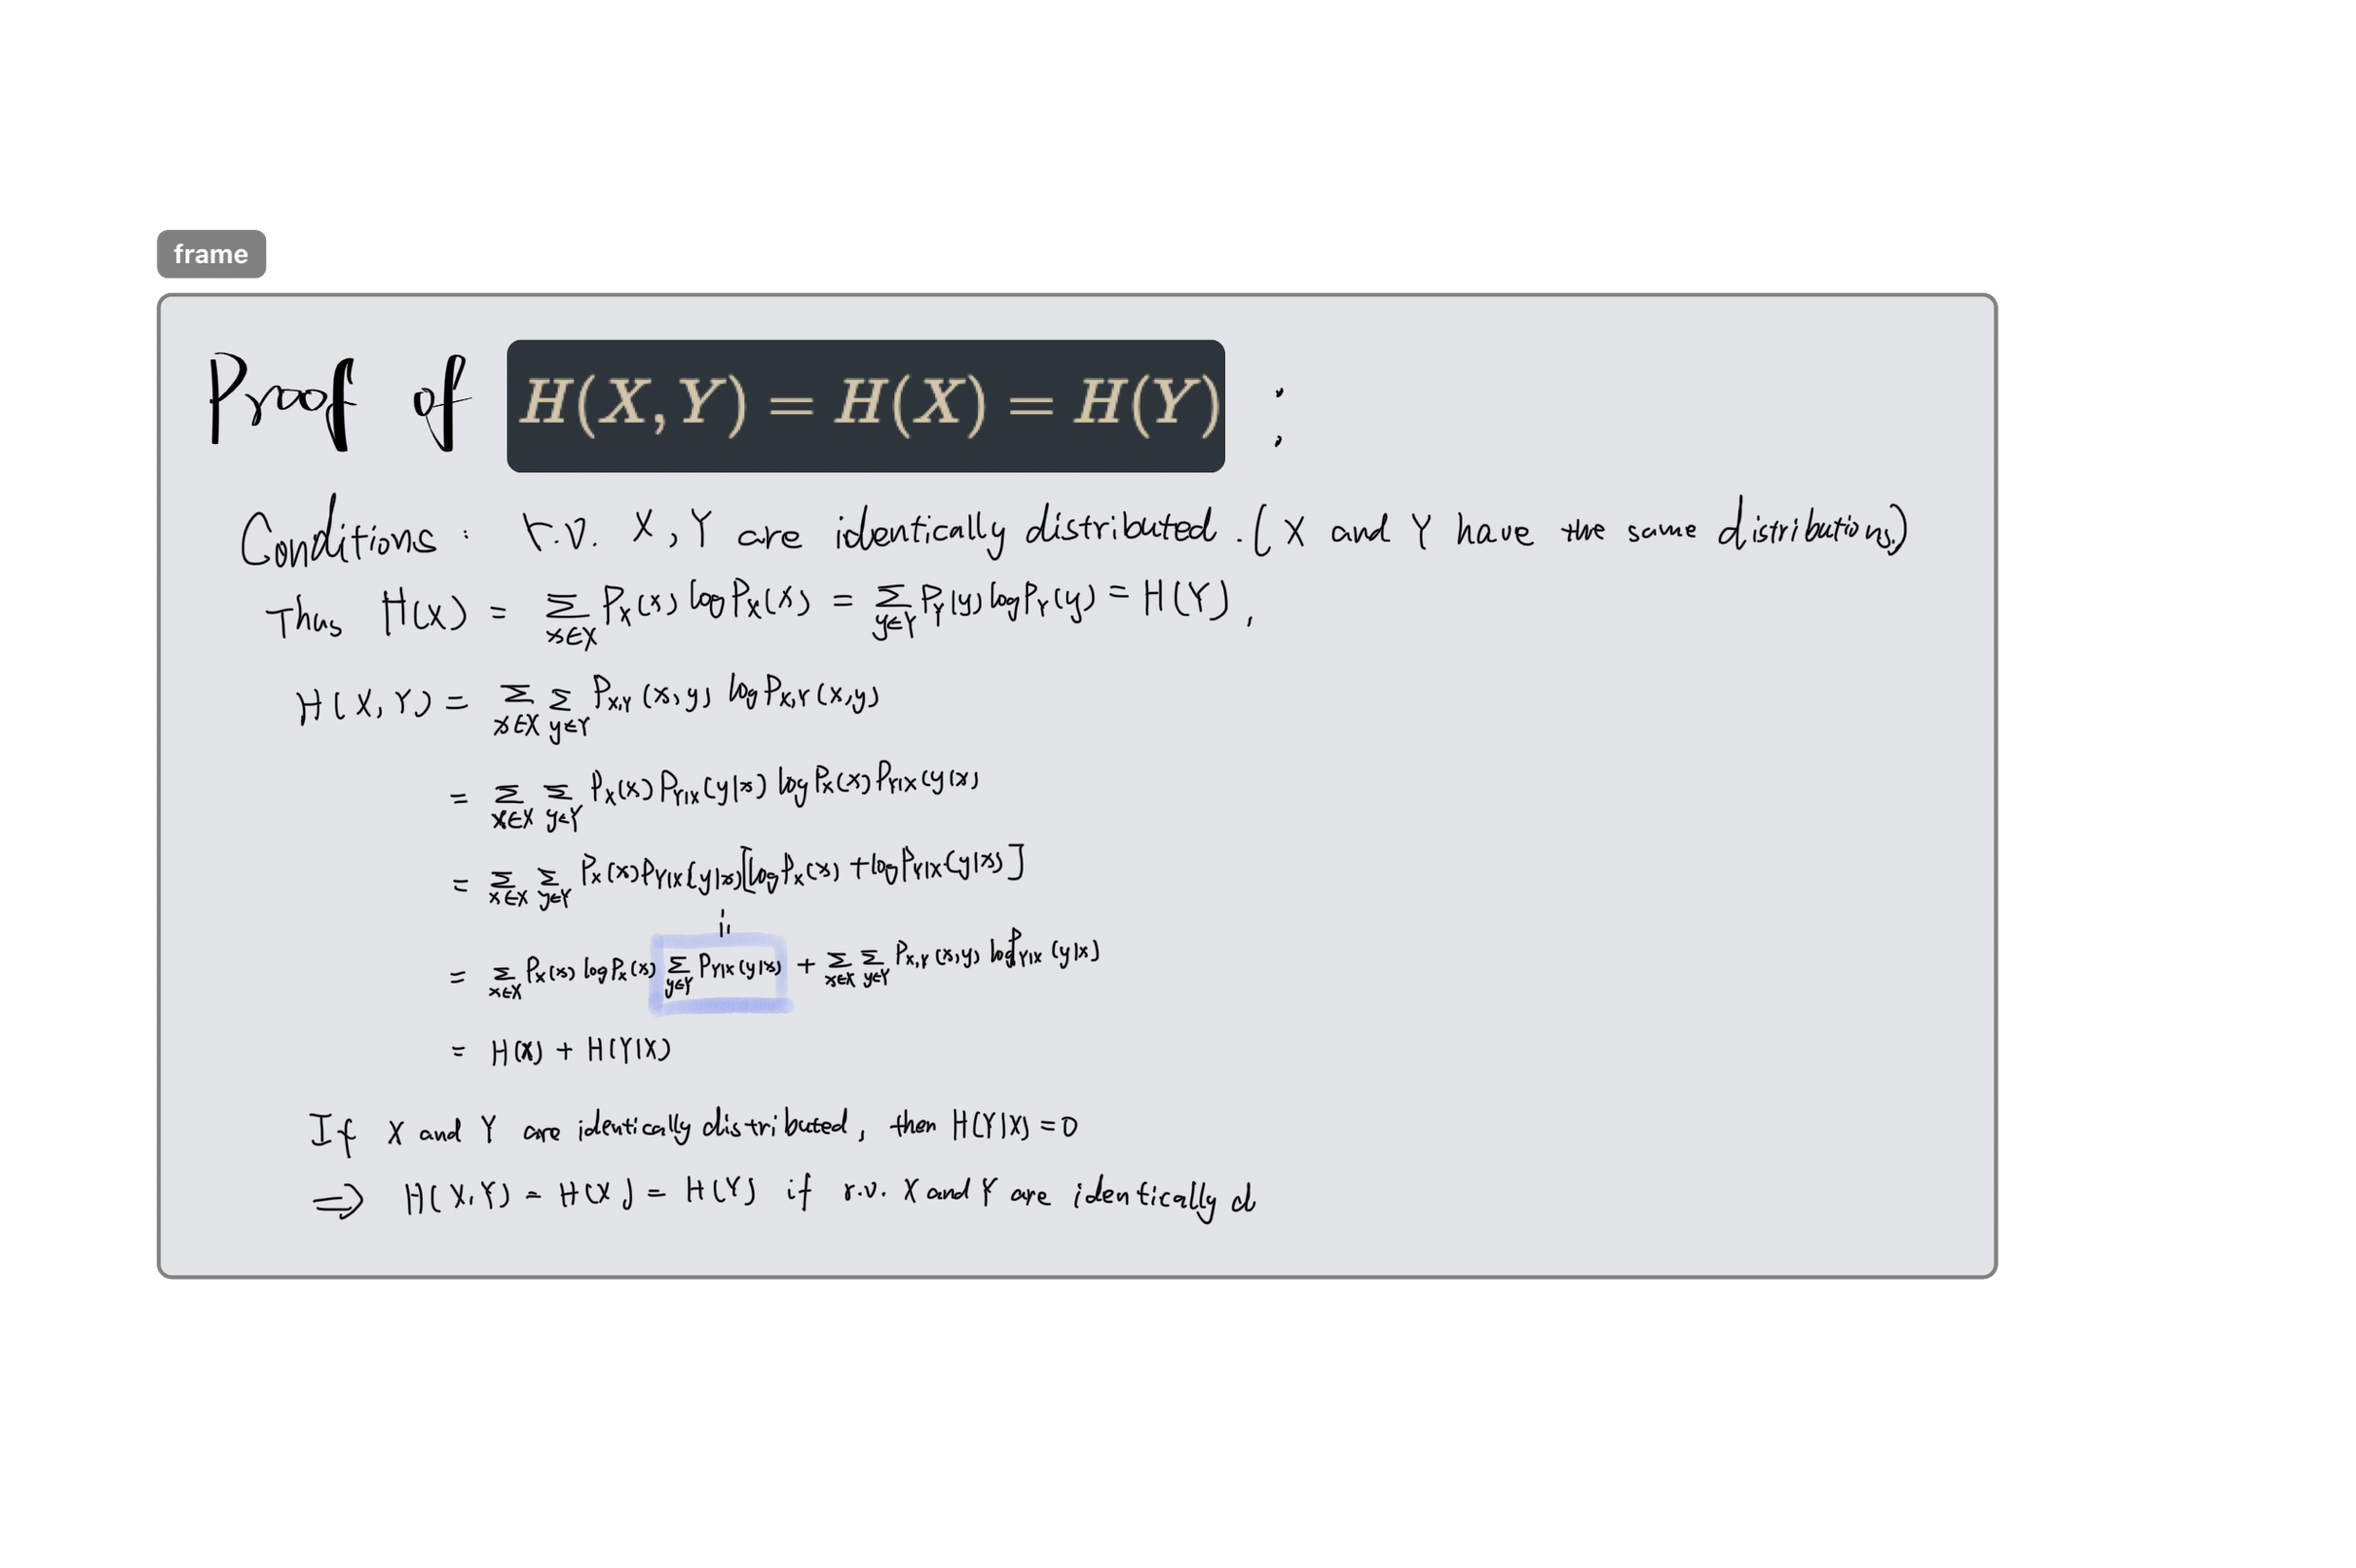 frame
Proof of H(X, Y) = H(X) = H(Y) :
Conditions : r.v. X, Y are identically distributed. (X and Y have the same distributions.)
Thus H(X) = Σ_{x∈X} P_X(x) log P_X(x) = Σ_{y∈Y} P_Y(y) log P_Y(y) = H(Y),
H(X, Y) = Σ_{x∈X} Σ_{y∈Y} P_{X,Y}(x,y) log P_{X,Y}(x,y)
= Σ_{x∈X} Σ_{y∈Y} P_X(x) P_{Y|X}(y|x) log P_X(x) P_{Y|X}(y|x)
= Σ_{x∈X} Σ_{y∈Y} P_X(x) P_{Y|X}(y|x) [log P_X(x) + log P_{Y|X}(y|x)]
= Σ_{x∈X} P_X(x) log P_X(x) Σ_{y∈Y} P_{Y|X}(y|x) + Σ_{x∈X} Σ_{y∈Y} P_{X,Y}(x,y) log P_{Y|X}(y|x)
= H(X) + H(Y|X)
If X and Y are identically distributed, then H(Y|X) = 0
⟹ H(X,Y) = H(X) = H(Y) if r.v. X and Y are identically d